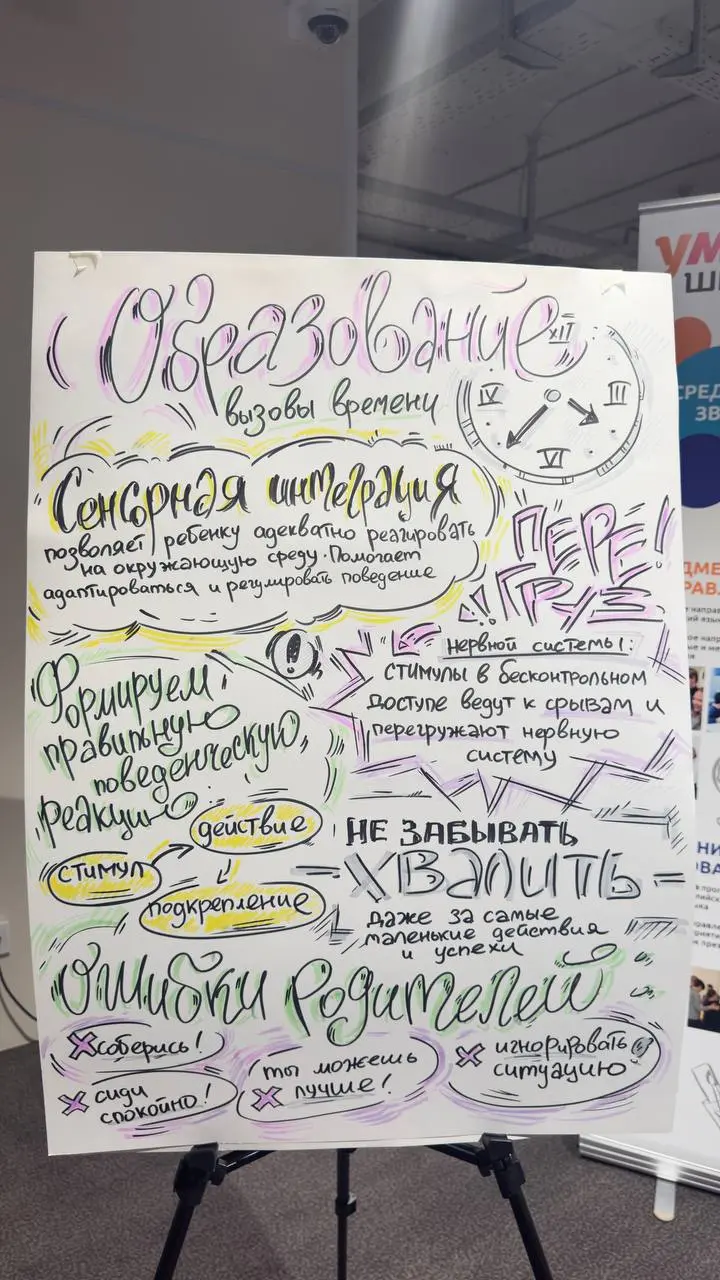 Образование
вызовы времени
XII
III
VI
IV
Сенсорная интеграция
позволяет ребенку адекватно реагировать
на окружающую среду. Помогает
адаптироваться и регулировать поведение
ПЕРЕ!
ГРУЗ
нервной системы:
стимулы в бесконтрольном
доступе ведут к срывам и
перегружают нервную
систему
!
Формируем
правильную
поведенческую
реакцию
стимул
действие
подкрепление
НЕ ЗАБЫВАТЬ
ХВАЛИТЬ
даже за самые
маленькие действия
и успехи
Ошибки родителей
соберись!
сиди
спокойно!
ты можешь
лучше!
игнорировать
ситуацию
УМ
Ш
СРЕД
ЗВ